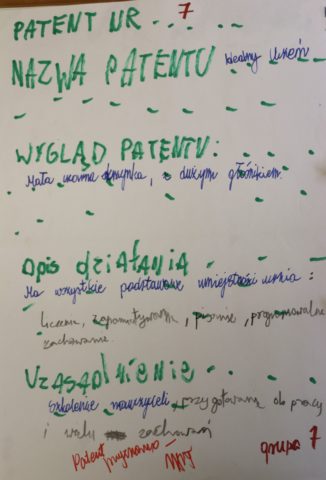 PATENT NR 7
NAZWA PATENTU idealny uczeń
WYGLĄD PATENTU:
Mała czarna skrzynka, z dużym głośnikiem.
Opis działania
Ma wszystkie podstawowe umiejętności ucznia:
liczenie, zapamiętywanie, pisanie, programowalne
zachowanie.
UZASADNIENIE
szkolenie nauczycieli przygotowane do pracy
i wielu zachowań
Patent
grupa 7